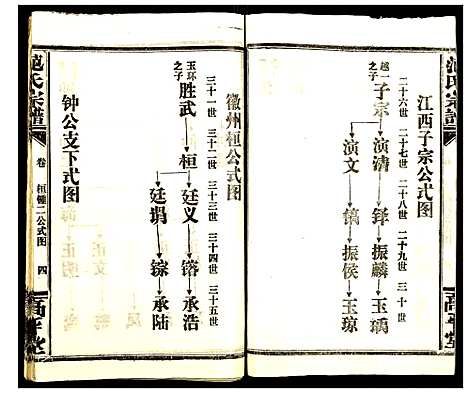 范氏宗譜
江西子宗公式图
二十六世 二十七世 二十八世 二十九世 三十世
越一之子 子宗
演清 铎 振麟 玉瑀
演文 镐 振侯 玉琼
高平堂
徽州桓公式图
三十一世 三十二世 三十三世 三十四世 三十五世
玉环之子 胜武 桓
廷义 镕 承浩
廷瑁 鍄 承陆
钟公支下式图
范氏宗譜
卷 桓锺二公式图 四
高平堂